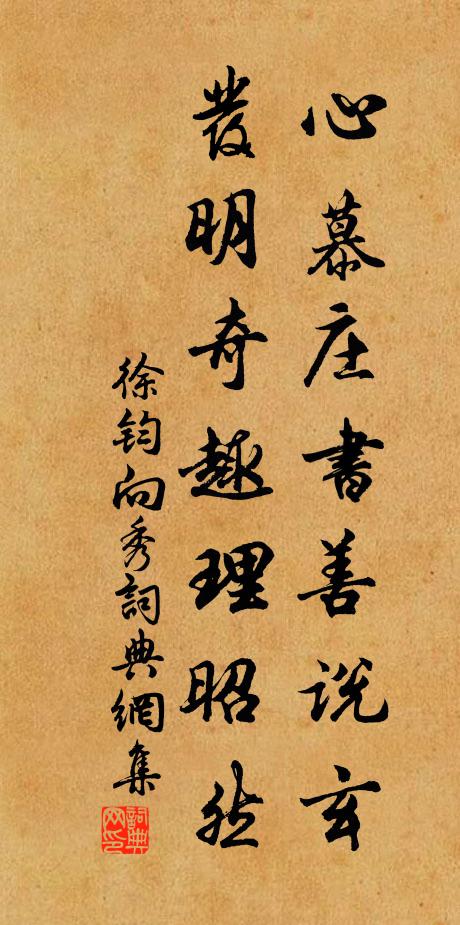 心慕庄書善说玄
發明奇趣理昭然
徐鈞向秀詞典網集
詞典网印